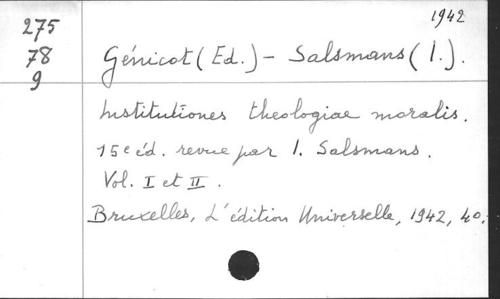 1942
275
78
9
Génicot (Ed.) – Salsmans (I.).
Institutiones theologiae moralis.
15e éd. revue par I. Salsmans.
Vol. I et II.
Bruxelles, L'édition Universelle, 1942, 4o.